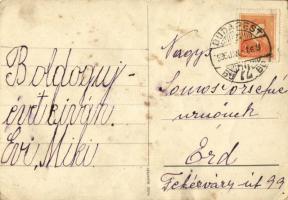 Boldog uj-
évet kiván
Évi, Miki
BUDAPEST
72
Nagys.
urnőnek
Érd
Fehérvári-út 99.